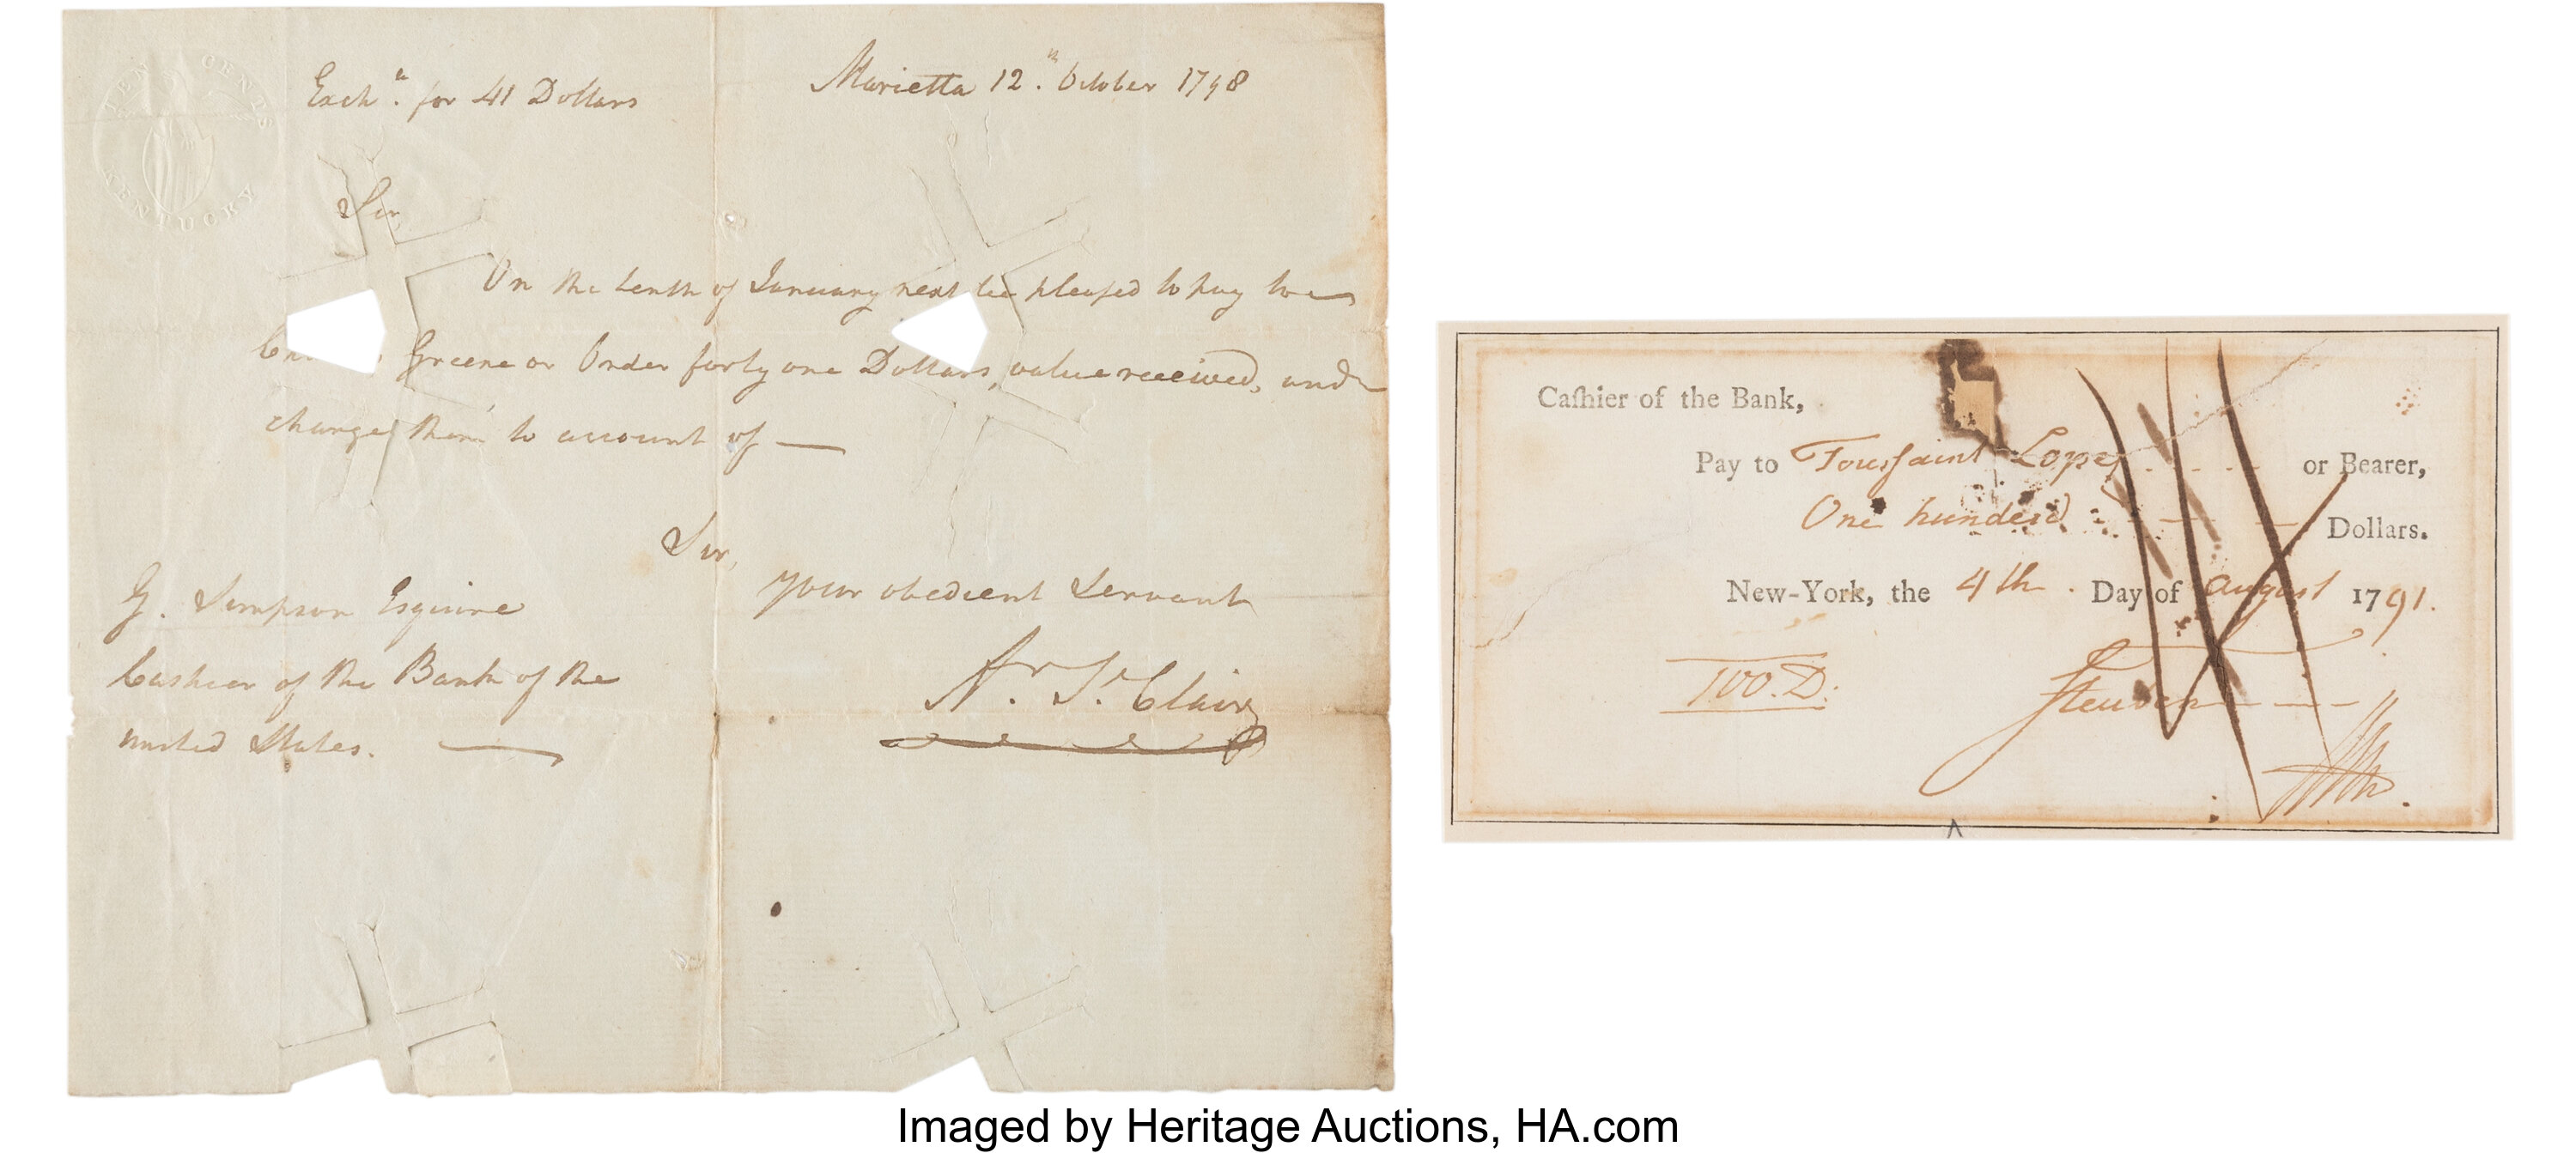 TEN CENTS
KENTUCKY
Exch.e for 41 Dollars
Marietta 12.th October 1798
Sir,
On the tenth of January next be pleased to pay to
Greene or Order forty one Dollars, value received, and
charge them to account of —
Sir,
your obedient Servant
Ar. St. Clair
G. Simpson Esquire
Casheer of the Bank of the
united States. —
Caſhier of the Bank,
Pay to Tousſaint Lopez or Bearer,
One hundred Dollars.
New-York, the 4th. Day of august 1791.
100.D.
Steuben
Imaged by Heritage Auctions, HA.com